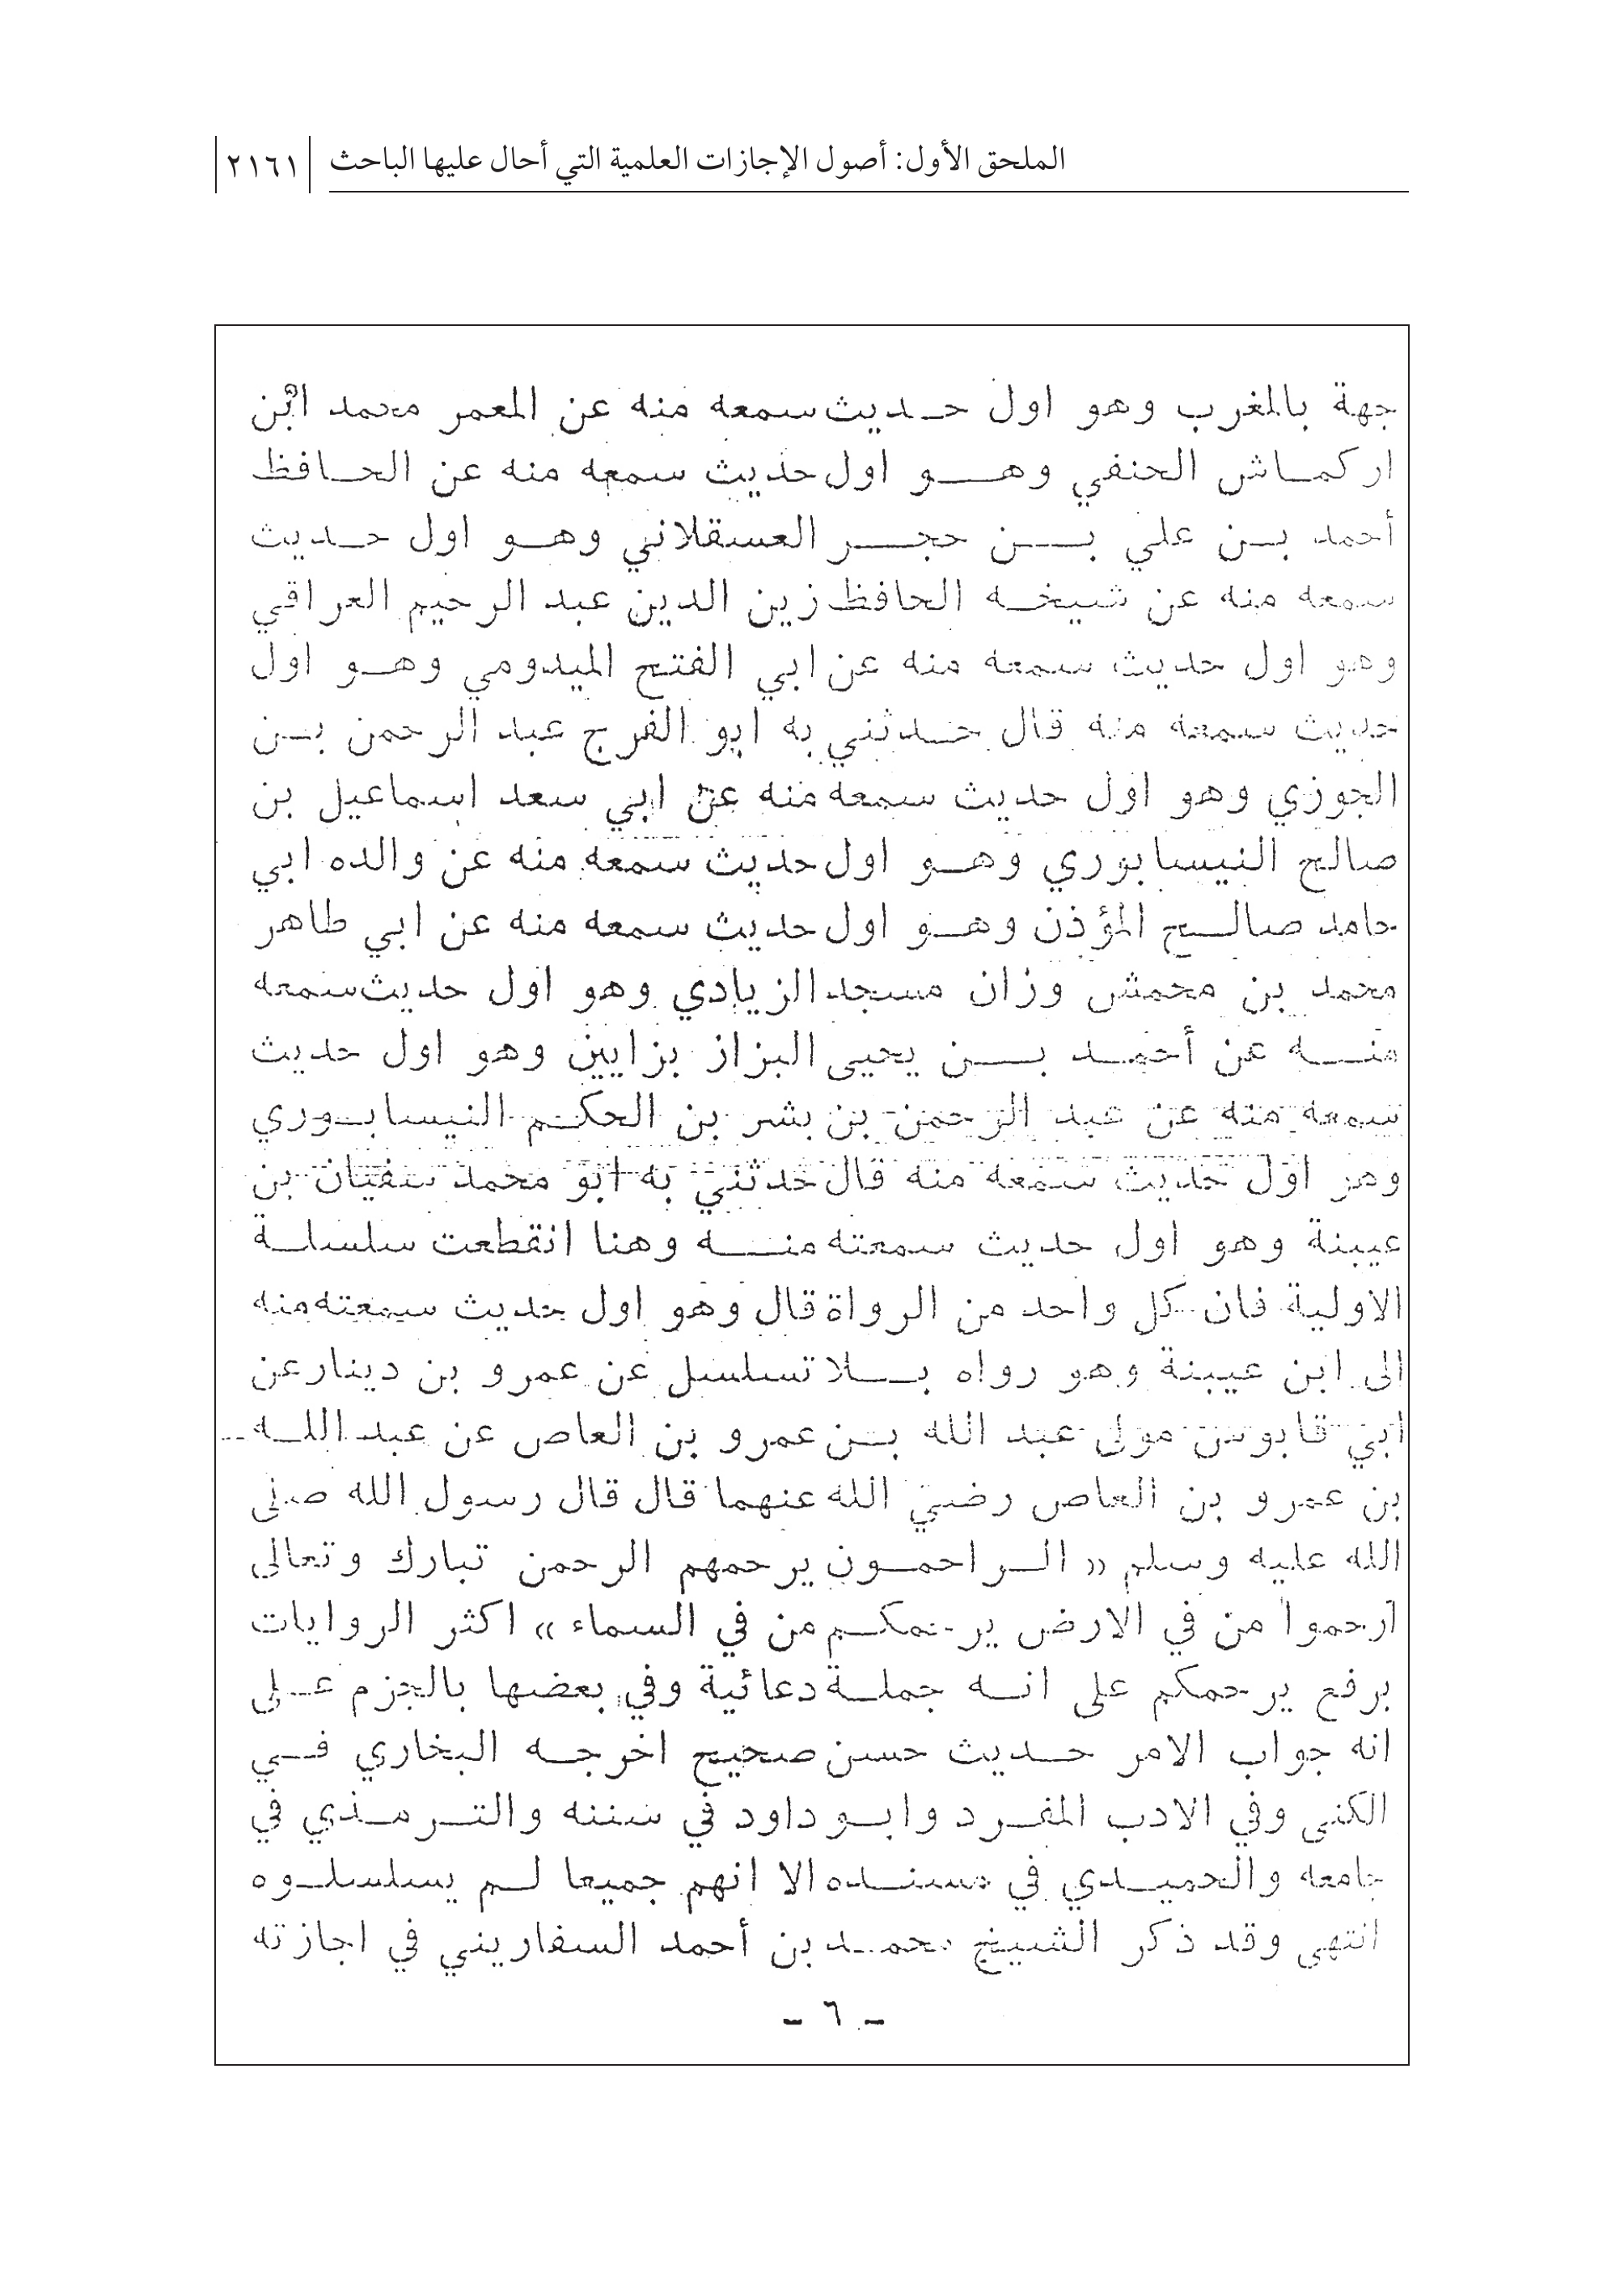 الملحق الأول: أصول الإجازات العلمية التي أحال عليها الباحث ٢١٦١
جهة بالمغرب وهو اول حديث سمعه منه عن المعمر محمد ابن
اركماش الحنفي وهو اول حديث سمعه منه عن الحافظ
أحمد بن علي بن حجر العسقلاني وهو اول حديث
سمعه منه عن شيخه الحافظ زين الدين عبد الرحيم العراقي
وهو اول حديث سمعه منه عن ابي الفتح الميدومي وهو اول
حديث سمعه منه قال حدثني به ابو الفرج عبد الرحمن بن
الجوزي وهو اول حديث سمعه منه عن ابي سعد اسماعيل بن
صالح النيسابوري وهو اول حديث سمعه منه عن والده ابي
حامد صالح المؤذن وهو اول حديث سمعه منه عن ابي طاهر
محمد بن محمش وزان مسجد الزيادي وهو اول حديث سمعه
منه عن أحمد بن يحيى البزاز بزايين وهو اول حديث
سمعه منه عن عبد الرحمن بن بشر بن الحكم النيسابوري
وهو اول حديث سمعه منه قال حدثني به ابو محمد سفيان بن
عيينة وهو اول حديث سمعته منه وهنا انقطعت سلسلة
الاولية فان كل واحد من الرواة قال وهو اول حديث سمعته منه
الى ابن عيينة وهو رواه بلا تسلسل عن عمرو بن دينار عن
ابي قابوس مولى عبد الله بن عمرو بن العاص عن عبد الله
بن عمرو بن العاص رضي الله عنهما قال قال رسول الله صلى
الله عليه وسلم « الراحمون يرحمهم الرحمن تبارك وتعالى
ارحموا من في الارض يرحمكم من في السماء » اكثر الروايات
برفع يرحمكم على انه جملة دعائية وفي بعضها بالجزم على
انه جواب الامر حديث حسن صحيح اخرجه البخاري في
الكنى وفي الادب المفرد وابو داود في سننه والترمذي في
جامعه والحميدي في مسنده الا انهم جميعا لم يسلسلوه
انتهى وقد ذكر الشيخ محمد بن أحمد السفاريني في اجازته
- ٦ -